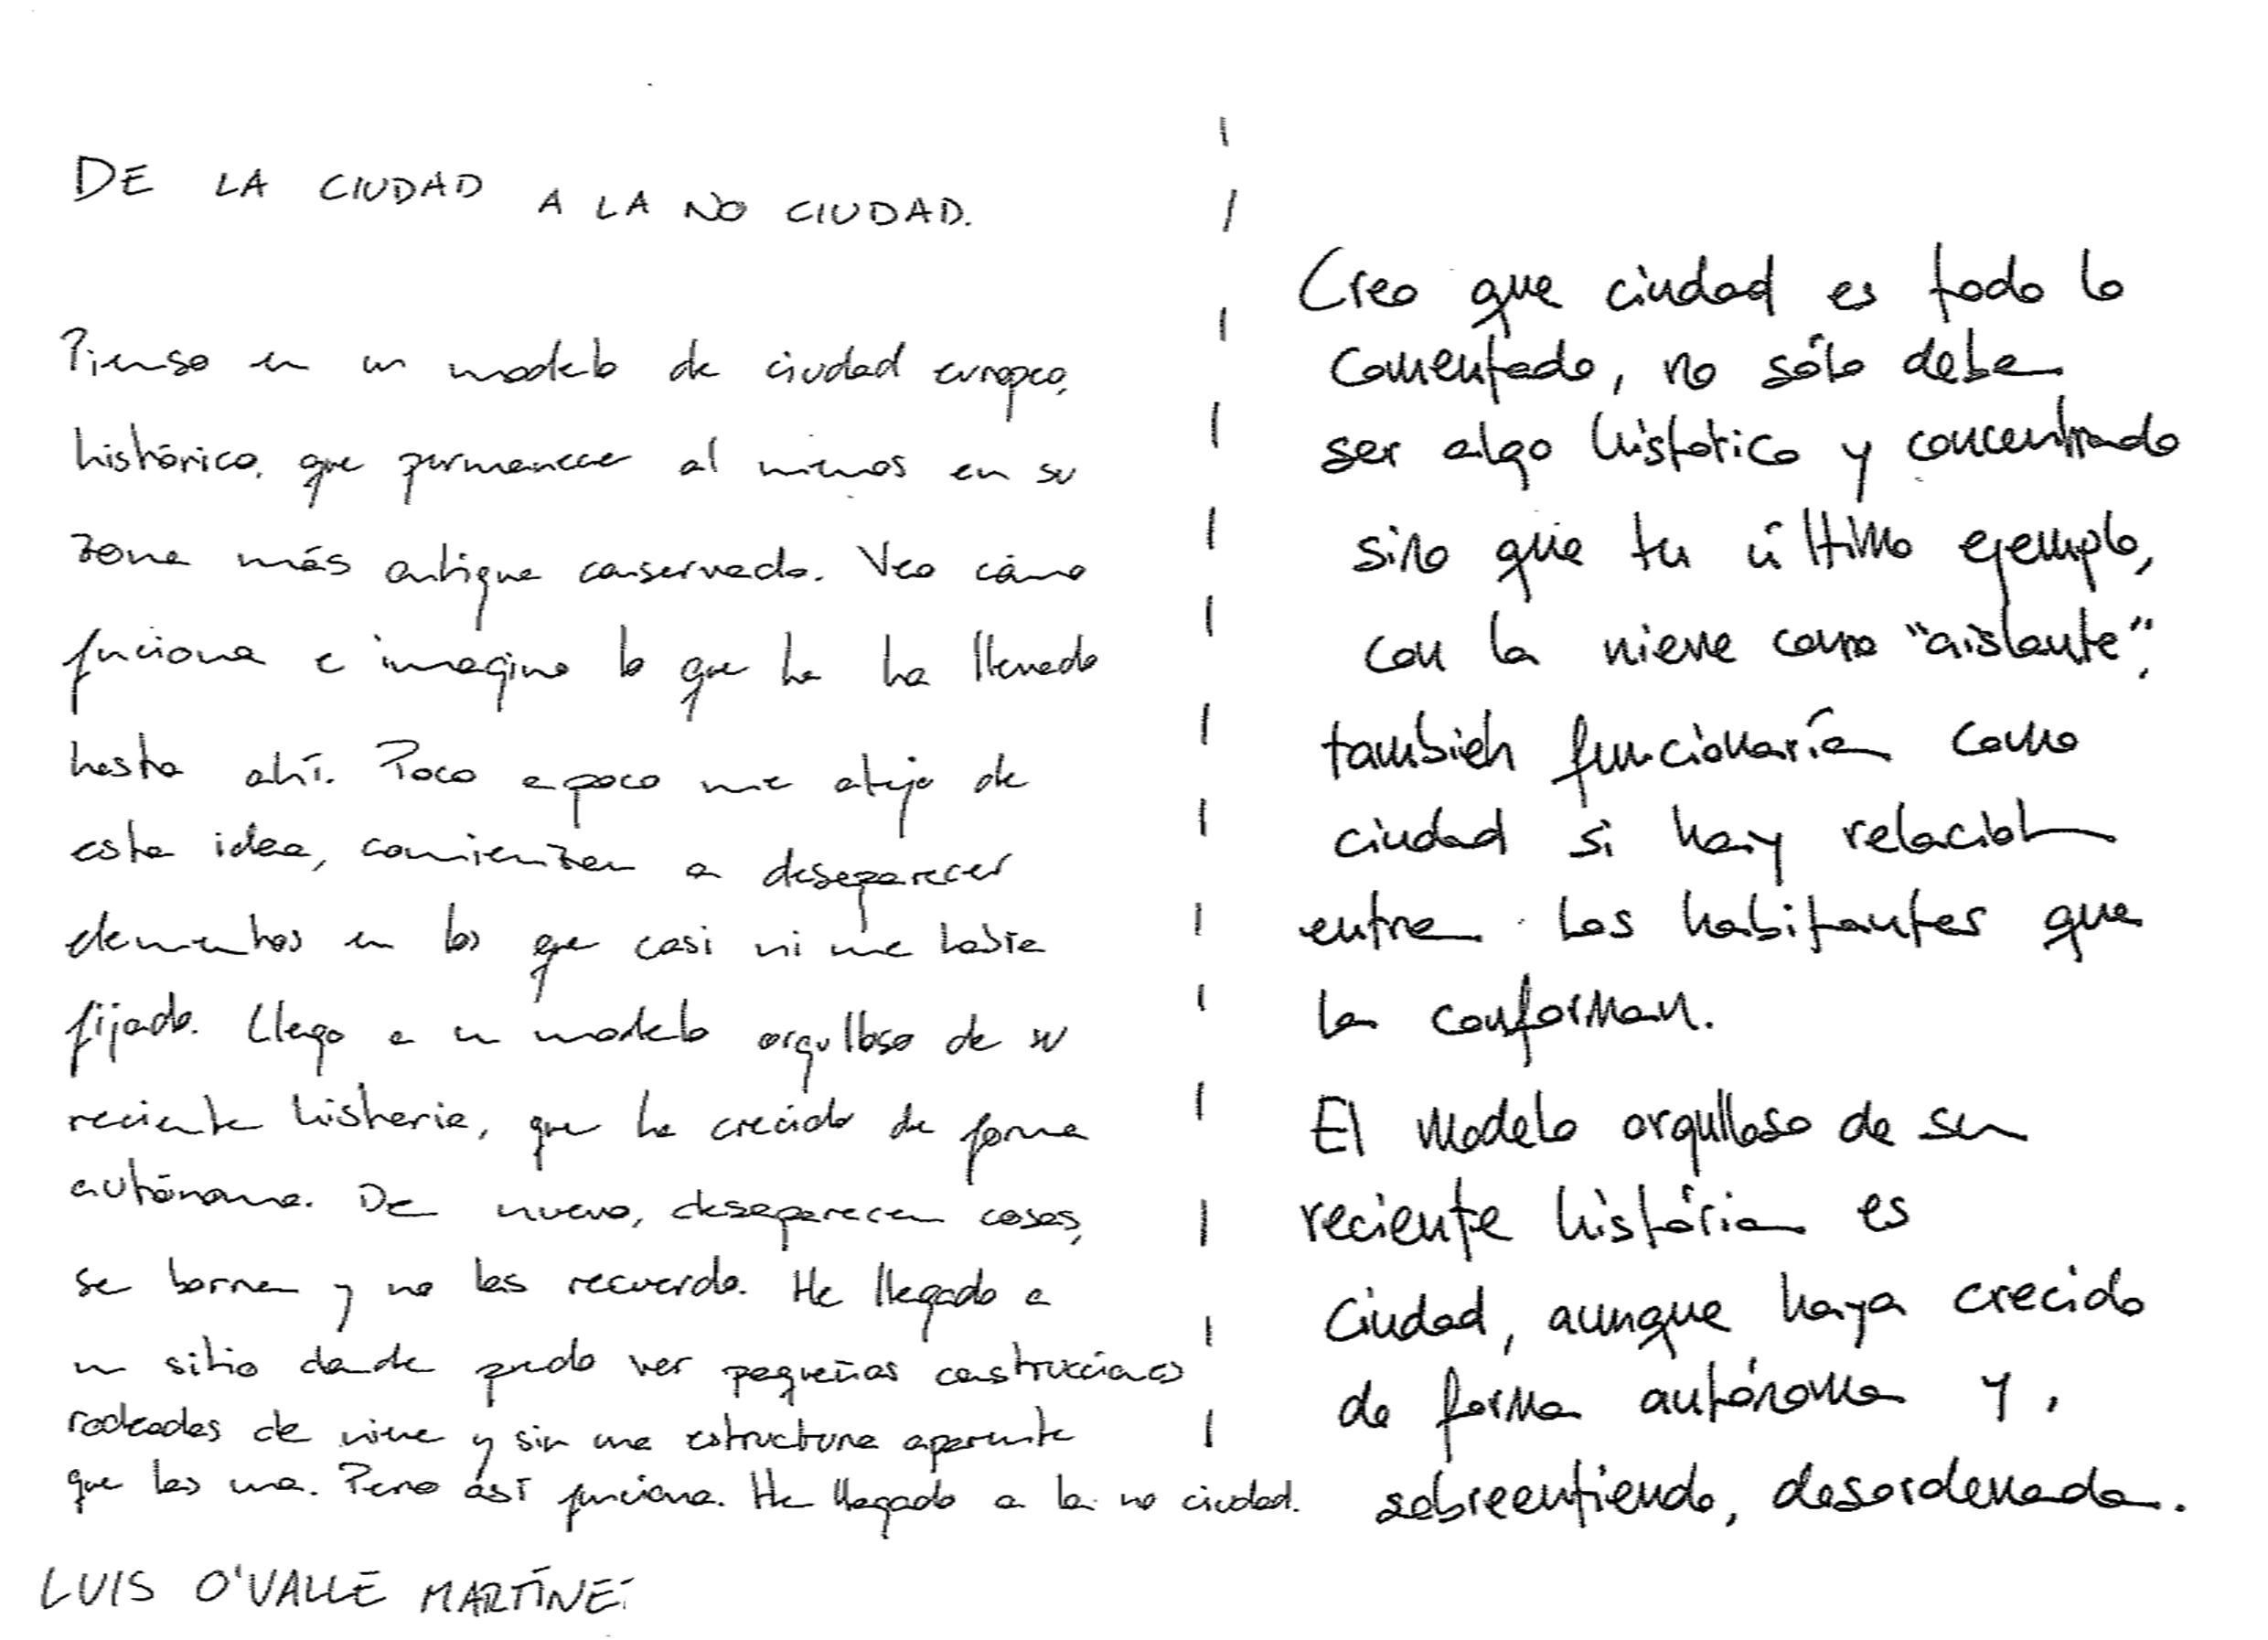 DE LA CIUDAD A LA NO CIUDAD.
Pienso en un modelo de ciudad europeo,
histórico, que permanece al menos en su
zona más antigua conservada. Veo cómo
funciona e imagino lo que ha ha llevado
hasta ahí. Poco a poco me alejo de
esta idea, comienzan a desaparecer
elementos en los que casi ni me había
fijado. Llego a un modelo orgulloso de su
reciente historia, que ha crecido de forma
autónoma. De nuevo, desaparecen cosas,
se borran y no las recuerdo. He llegado a
un sitio donde puedo ver pequeñas construcciones
rodeadas de nieve y sin una estructura aparente
que las una. Pero así funciona. He llegado a la no ciudad.
LUIS O'VALLE MARTÍNE
Creo que ciudad es todo lo
comentado, no sólo debe
ser algo histórico y concentrado
sino que tu último ejemplo,
con la nieve como "aislante",
también funcionaría como
ciudad si hay relación
entre los habitantes que
la conforman.
El modelo orgulloso de su
reciente história es
ciudad, aunque haya crecido
de forma autónoma y,
sobreentiendo, desordenada.